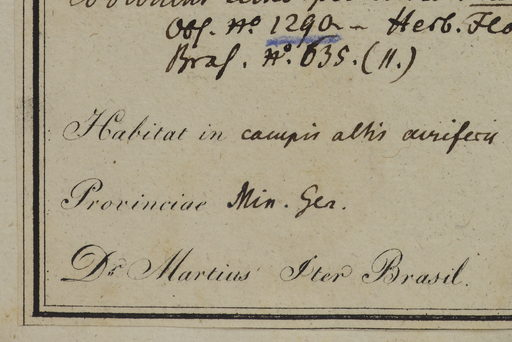 Obs. Nº. 1290. – Herb. Flo
Bras. Nº. 635. (II.)
Habitat in campis altis auriferis
Provinciae Min. Ger.
Dr. Martius Iter Brasil.